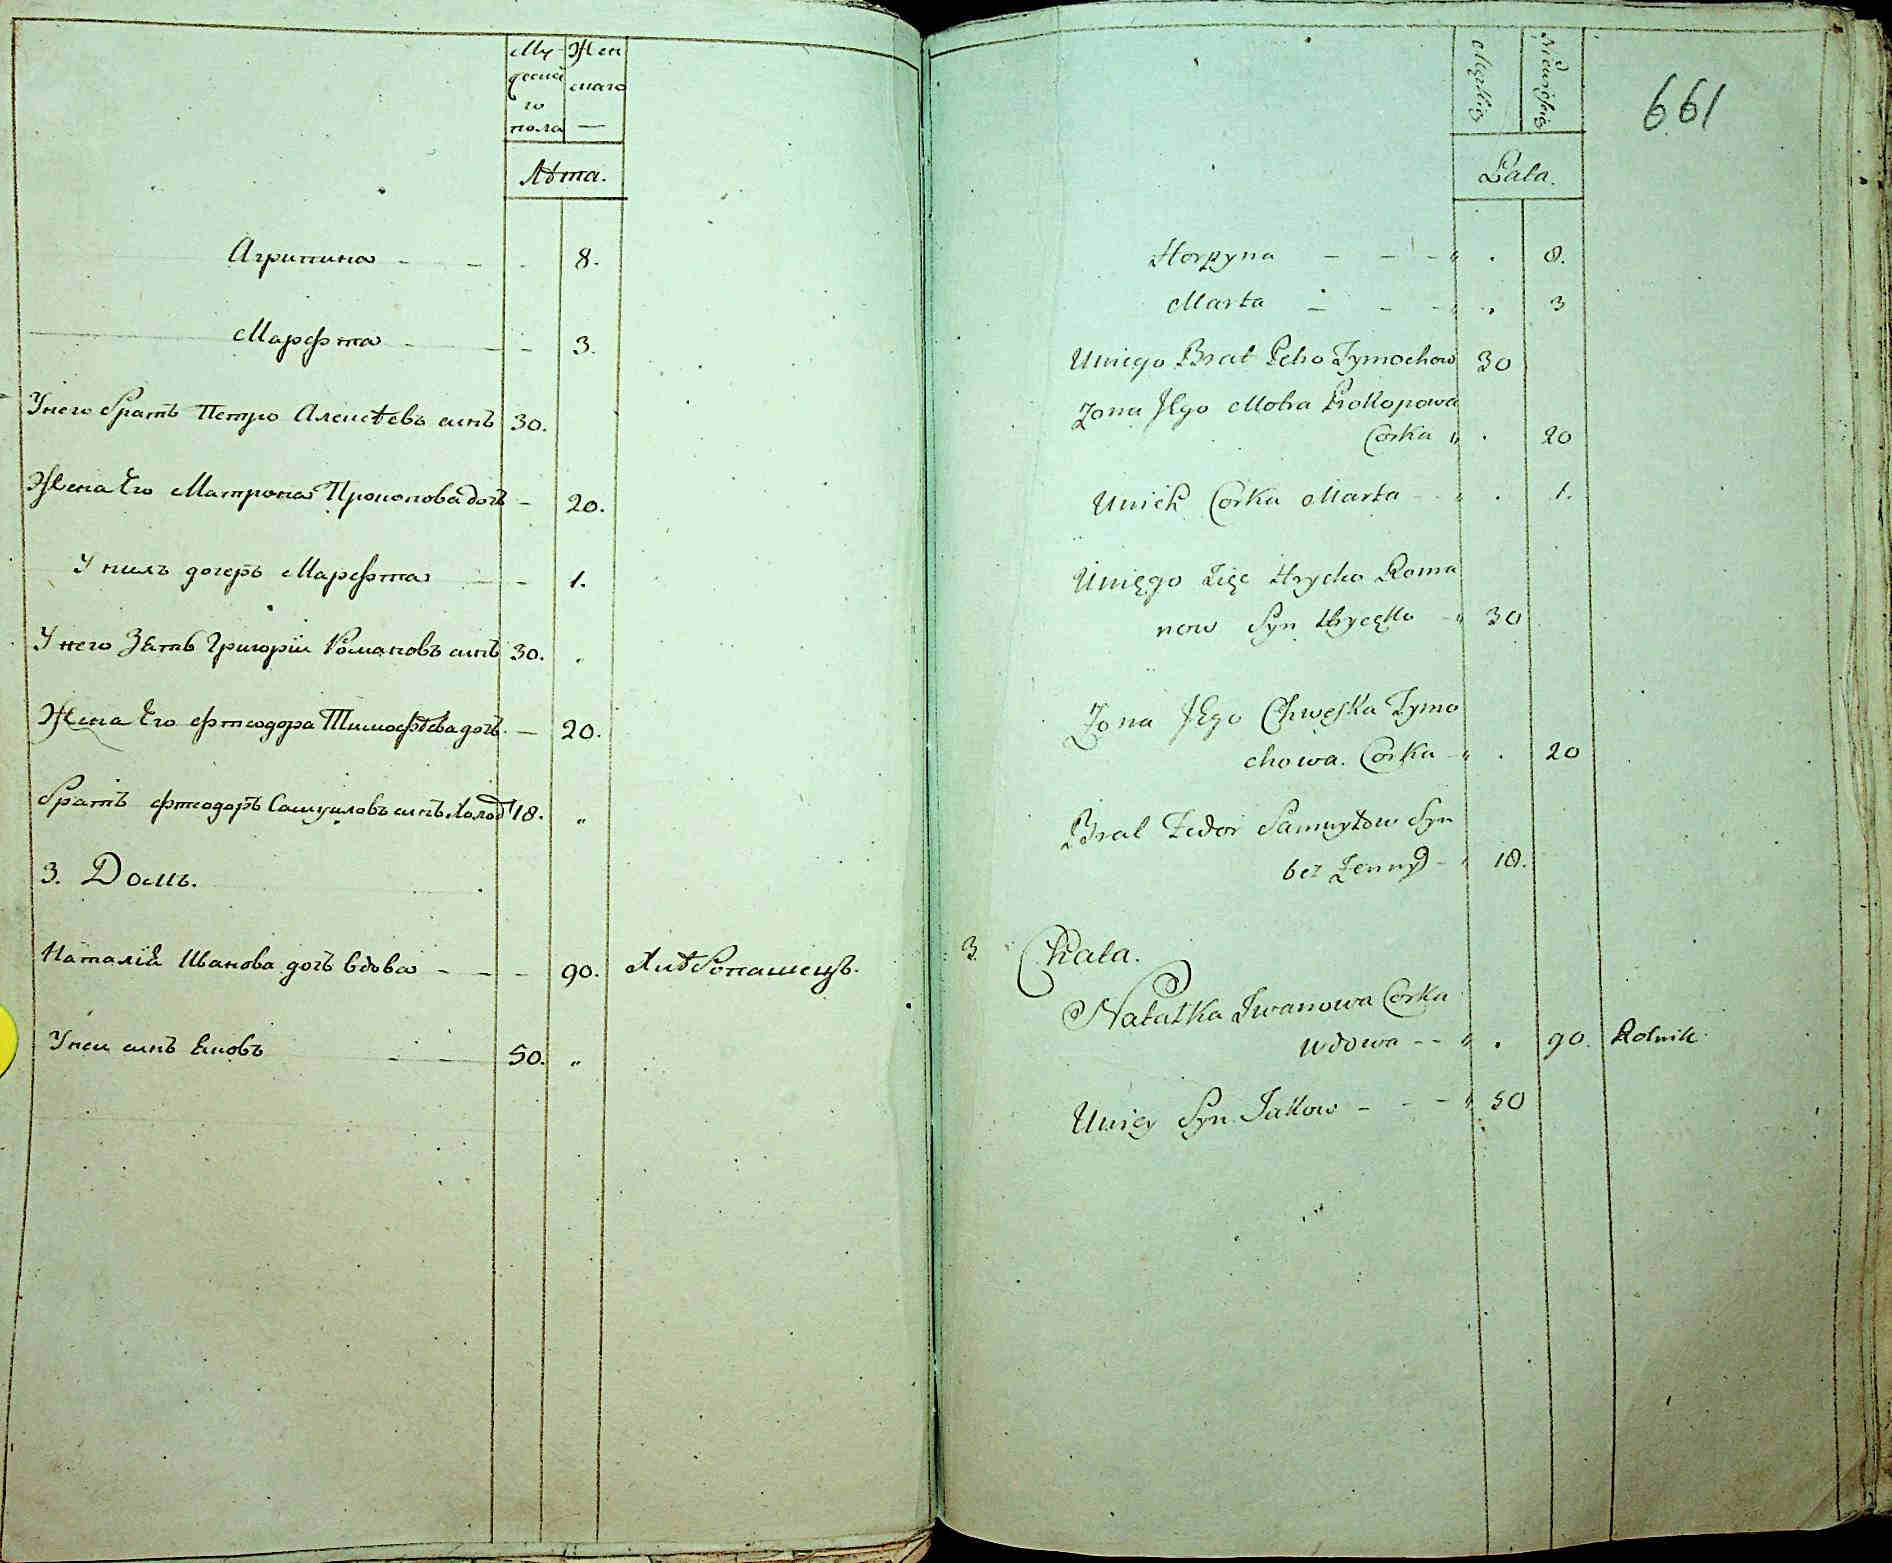 Му
жеска
го
пола
Жен
скаго
—
Лѣта.
Агрипина - - - 8.
Марѳта - - - 3.
У него братъ Петро Алексѣевъ синъ 30.
Жена Его Матрона Прокопова дочь - 20.
У нихъ дочеръ Марѳта - - 1.
У него Зять Григорій Романовъ синъ 30. „
Жена Его Ѳтеодора Тимоѳѣева дочь - 20.
братъ Ѳтеодоръ Самуиловъ синъ Холод 18. „
3. Домъ.
Наталія Иванова дочь вдова - - - 90. Хлѣбопашецъ.
У неи синъ Яковъ - - 50. „
Męzkie
Niewieście
661
Lata.
Horpyna - - - „ . 8.
Marta - - - „ . 3
Uniego Brat Petro Tymochow 30
Zona Jego Motra Prokopowa
Corka „ . 20
Unich Corka Marta - - „ . 1.
Uniego Zięc Hrycko Roma
now Syn Hrycko - „ 30
Zona Jego Chweska Tymo
chowa Corka - „ . 20
Brat Fedor Samuyłow Syn
bez Zenny - „ 18.
3. Chata.
Natalka Iwanowa Corka
wdowa - - „ . 90. Rolnik
Uniey Syn Jakow - - - „ 50